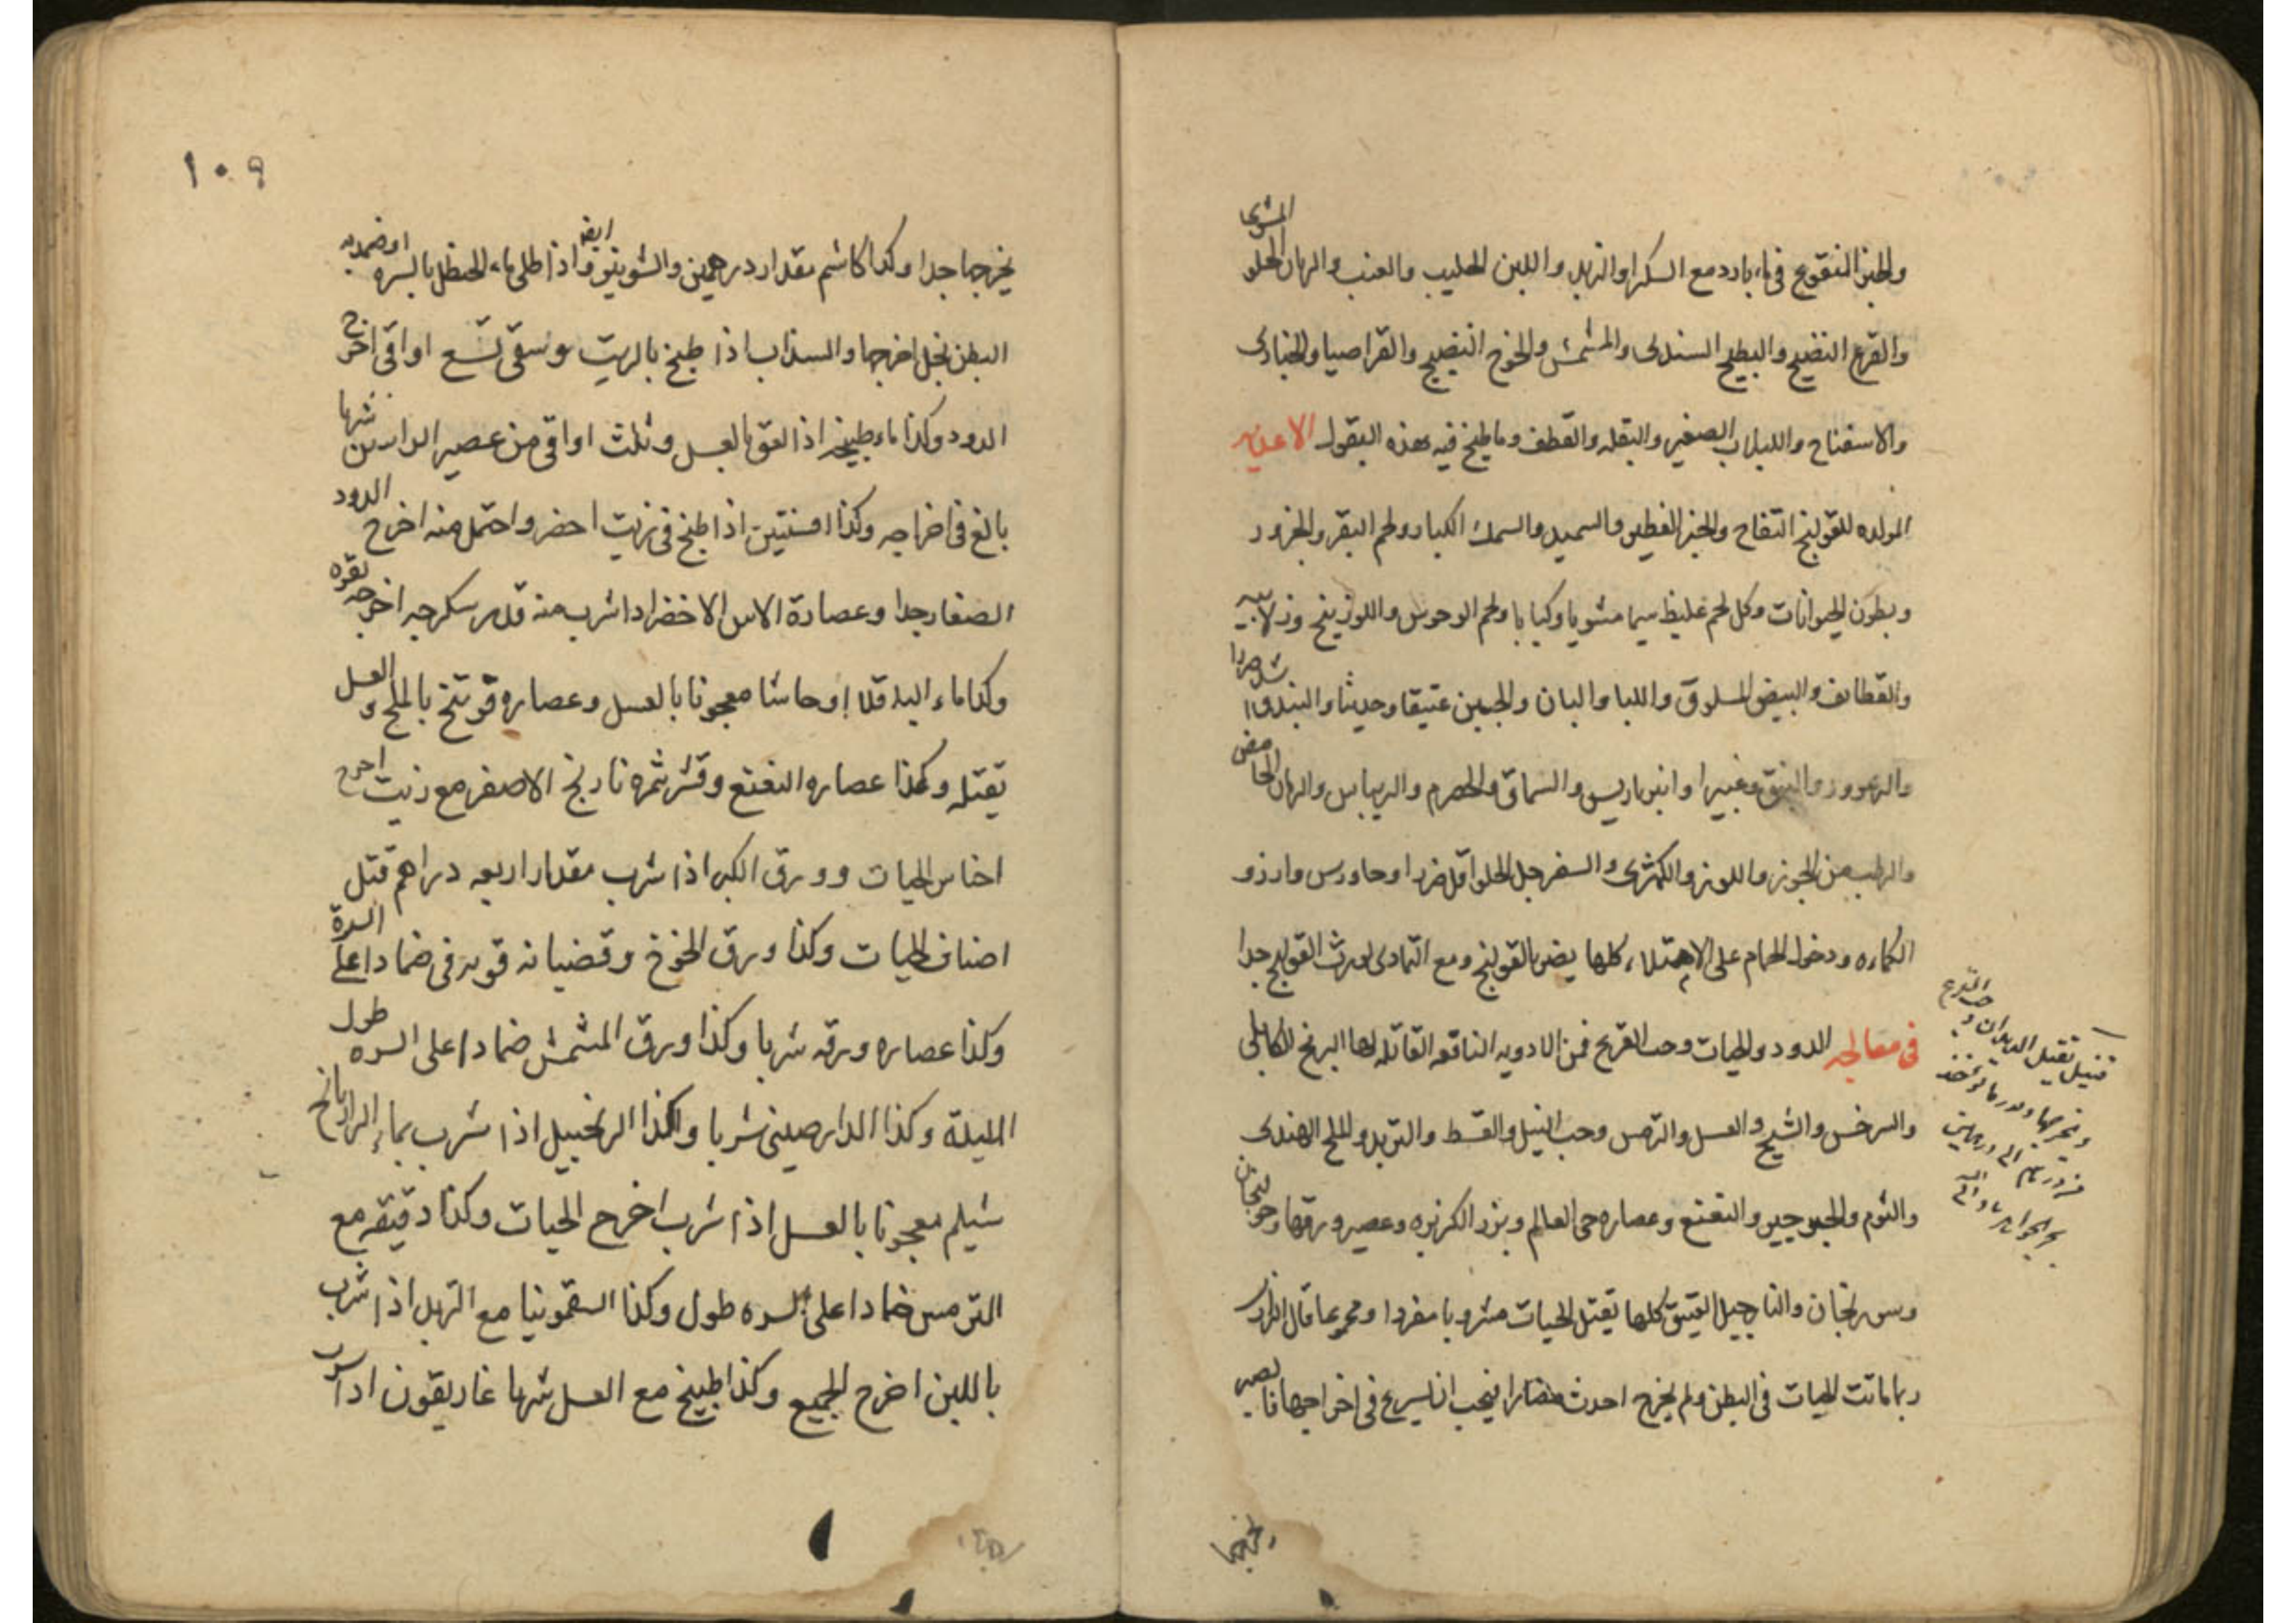 والجبن النقوع في ماء بارد مع السكر او الزبد واللبن الحليب والعنب والرمان الحلو المشوي
والقرع النضيج والبطيخ السندي والمشمش والخوخ النضيج والقراصيا والخبازي
والاسفناخ واللبلاب الصغير والبقله والقطف وما طبخ فيه هذه البقول الاغذيه
المولده للقولنج التفاح والخبز الفطير والسميد والسمك الكبار ولحم البقر والجزور
وبطون الحيوانات وكل لحم غليظ سيما مشويا وكبابا ولحم الوحوش واللوزينج وزلابيه
والقطايف والبيض المسلوق واللبا والبان والجبن عتيقا وحديثا والبندق
والزعرور والنبق وغبيرا وانبرباريس والسماق والحصرم والريباس والرمان الحامض
والرطب من الجوز واللوز والكمثرى والسفرجل الحلو اقل ضررا وجاورس وارز و
الكماه ودخول الحمام على الامتلاء كلها يضر بالقولنج ومع التمادي يورث القولنج جدا
في معالجه الدود والحيات وحب القرع فمن الادويه النافعه القاتله لها البرنج الكابلي
والسرخس والشيح والعسل والترمس وحب النيل والقسط والتربد والملح الهندي
والثوم والنعنع وعصاره حي العالم وبزر الكزبره وعصير ورقها وخولنجان
وسورنجان والنارجيل العتيق كلها يقتل الحيات مشروبا مفردا ومجموعا قال
ربما ماتت الحيات في البطن ولم يخرج احدث مضارا فيجب ان يسرع في اخراجها
قنبيل يقتل الديدان وحب القرع
ويخرجها
يخرجها
١٠٩
يخرجها جدا وكذا كاشم مقدار درهمين والشونيز ايضا واذا طلي بماء الحنظل بالسره او ضمد به
البطن بخل اخرجها والسذاب اذا طبخ بالزيت وسقي تسع اواقي اخرج
الدود وكذا ماء طبيخه اذا لعق بالعسل وثلث اواقي من عصير الراسن شربا
بالغ في اخراجه وكذا افسنتين اذا طبخ في زيت اخضر واحتمل منه اخرج الدود
الصغار جدا وعصارة الاس الاخضر اذا شرب منه قدر سكرجه اخرجه بقوه
وكذا ماء الباقلا او حاشا معجونا بالعسل وعصاره فوتنج بالملح والعسل
يقتله وكذا عصاره النعنع وقشر ثمره نارنج الاصفر مع زيت اخرج
اجناس الحيات وورق الكبر اذا شرب مقدار اربعه دراهم قتل
اصناف الحيات وكذا ورق الخوخ وقضبانه قويه في ضمادا على السرة
وكذا عصاره ورقه شربا وكذا ورق المشمش ضمادا على السره طول
الليلة وكذا الدارصيني شربا وكذا الزنجبيل اذا شرب بماء الرازيانج
شيلم معجونا بالعسل اذا شرب اخرج الحيات وكذا دقيقه مع
الترمس ضمادا على السره طول وكذا السقمونيا مع التربد اذا شرب
باللبن اخرج الجميع وكذا طبيخ مع العسل شربا غاريقون اذا شرب